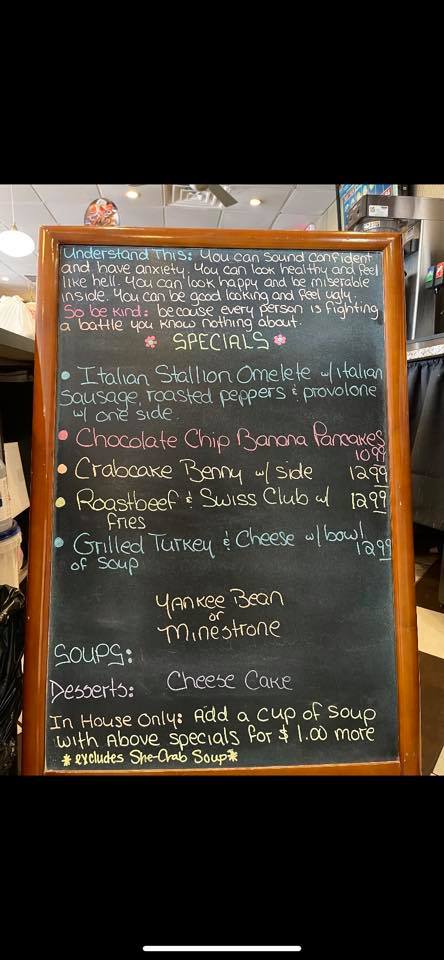 Understand This: You can sound confident
and have anxiety. You can look healthy and feel
like hell. You can look happy and be miserable
inside. You can be good looking and feel ugly.
So be kind: because every person is fighting
a battle you know nothing about.
SPECIALS
• Italian Stallion Omelete w/ italian
Sausage, roasted peppers & provolone
w/ one side.
• Chocolate Chip Banana Pancakes
10.99
• Crabcake Benny w/ side 12.99
• Roastbeef & Swiss Club w/ 12.99
fries
• Grilled Turkey & Cheese w/ bowl
of soup 12.99
Yankee Bean
or
Minestrone
Soups:
Desserts: Cheese Cake
In House Only: Add a cup of soup
with Above specials for $1.00 more
*excludes She-Crab Soup*